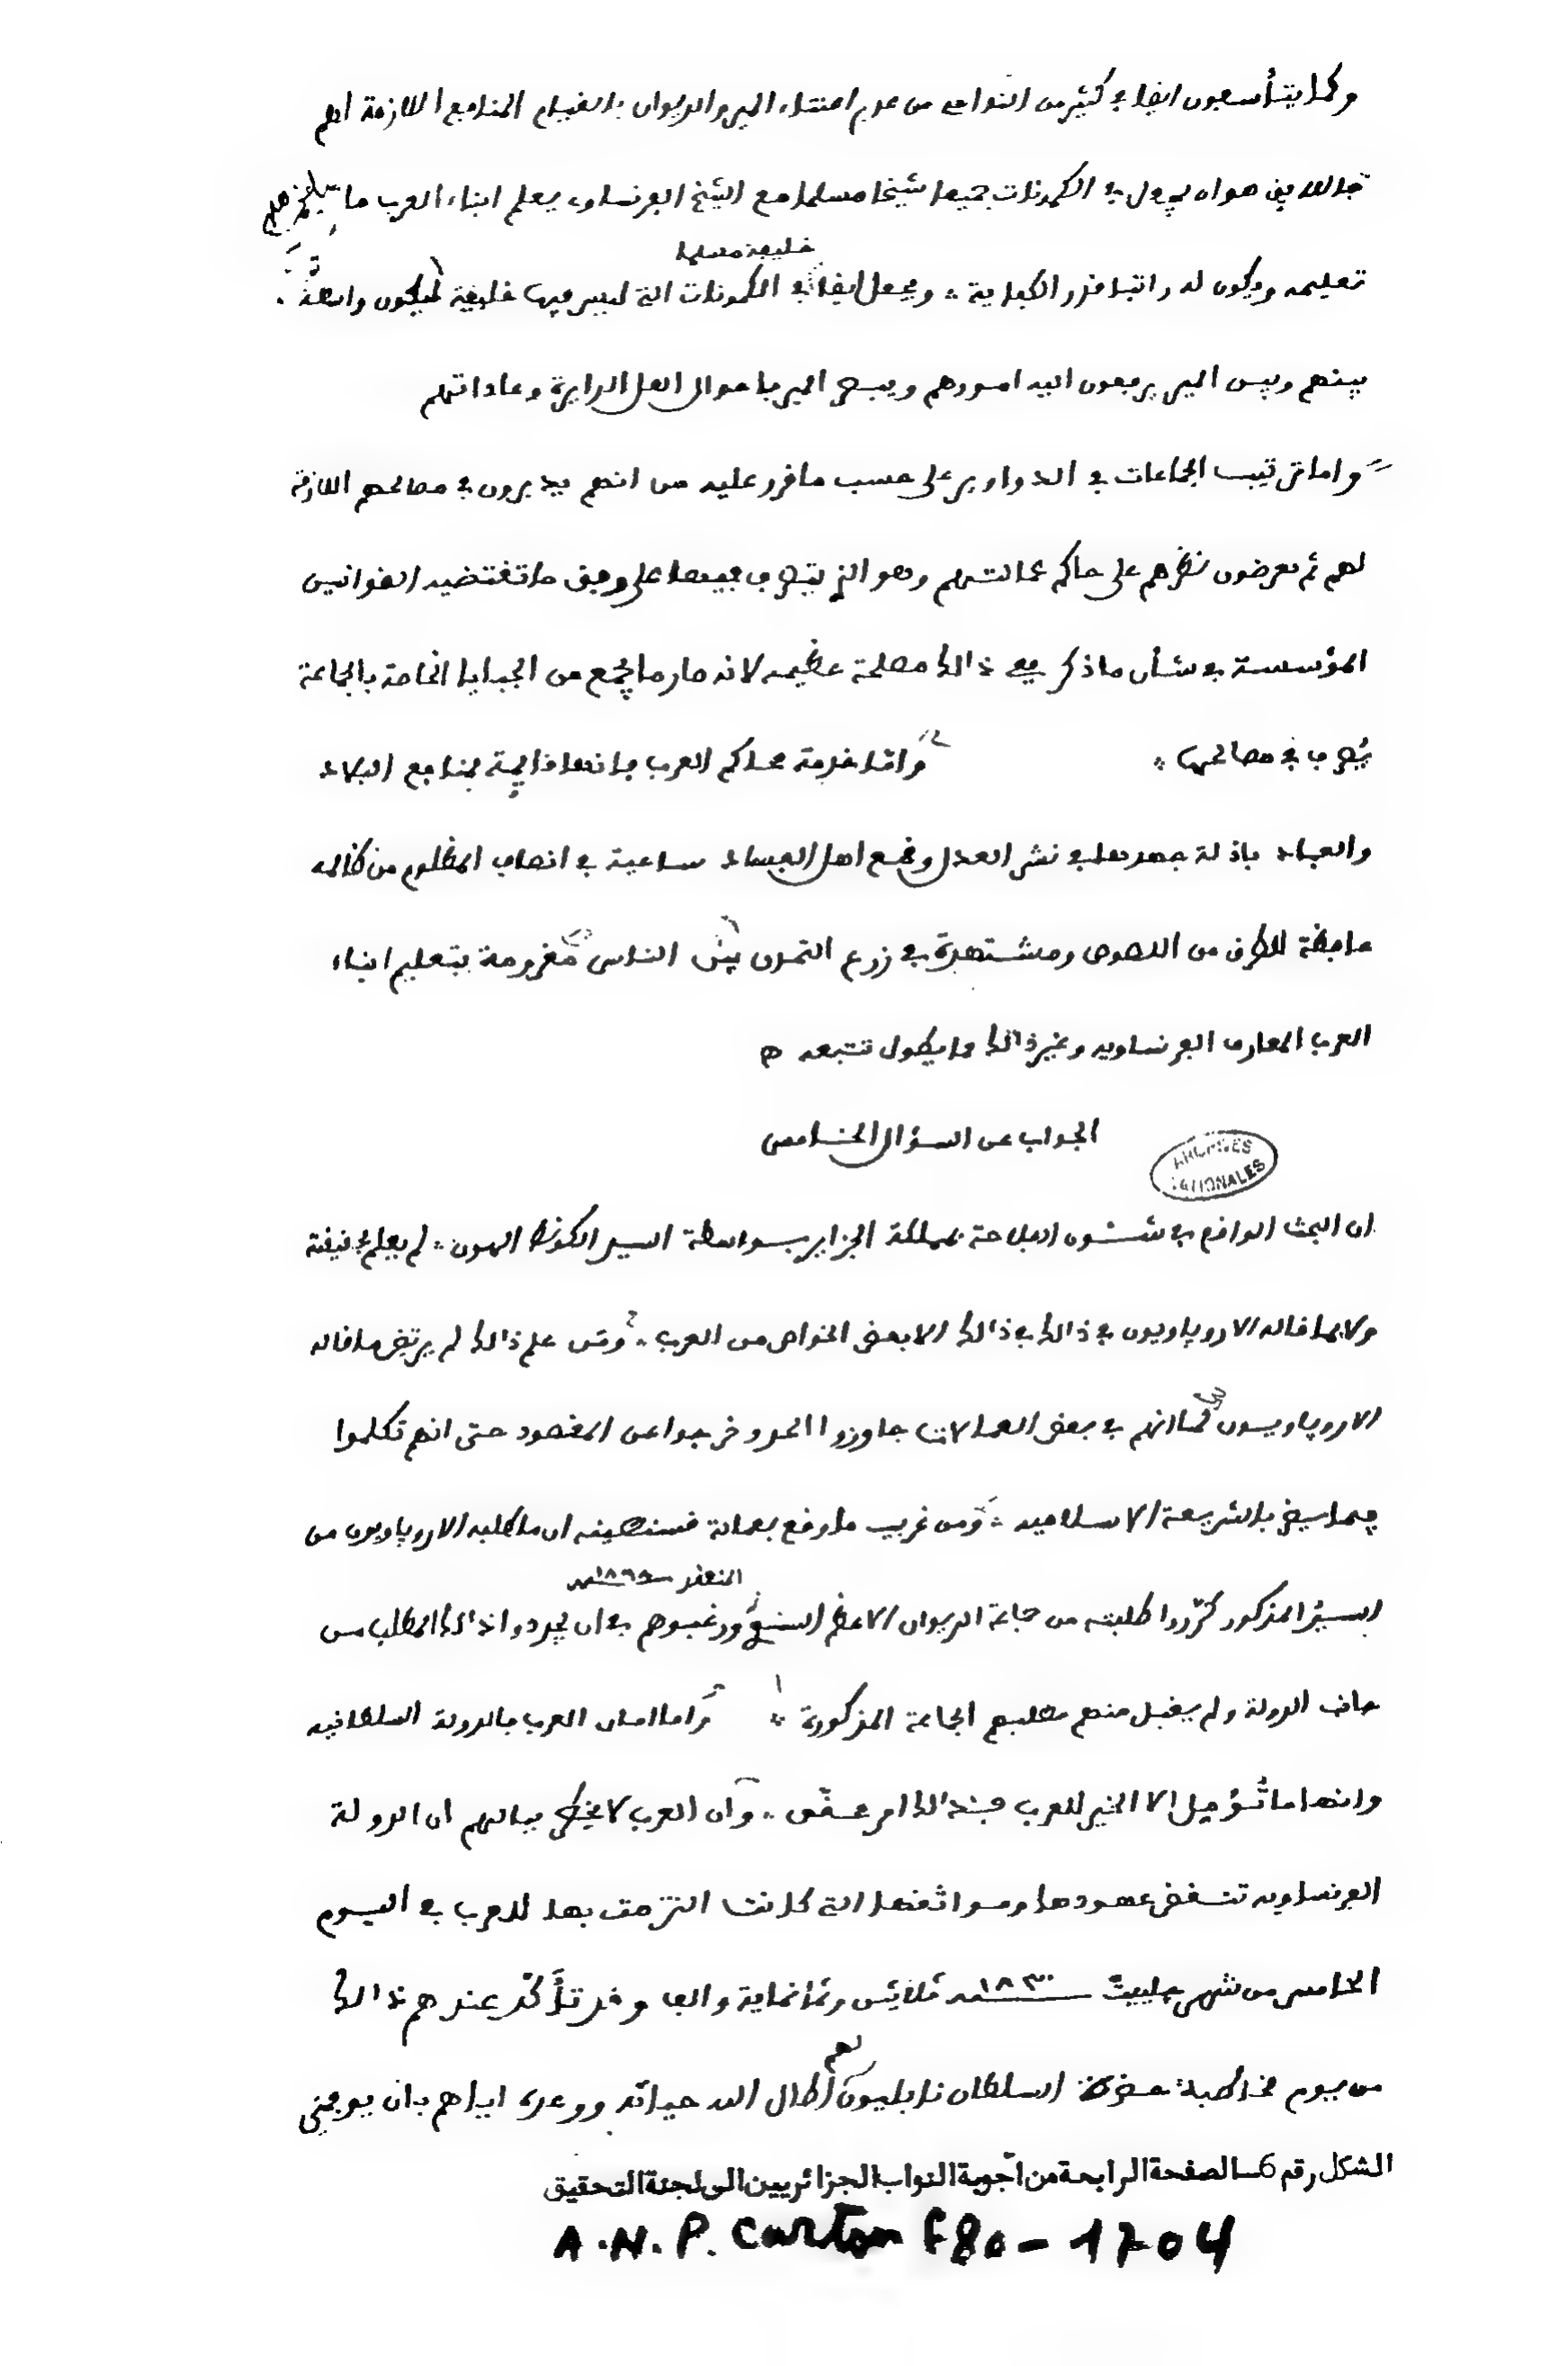 وكما يتأسفون ايضا في كثير من النواحي من عدم اعتناء المير والديوان بالقيام المنافع اللازمة لهم
فاللايق هو ان يرول في الكمونات جميعا شيخا مسلما مع الشيخ الفرنساوى يعلم ابناء العرب ما يلزمهم
خليفة مسلما
تعليمه ويكون له راتبا قدر الكفاية ويجعل ايضا في الكمونات التي ليس فيها خليفة ليكون واسطة
بينهم وبين المير يرفعون اليه امورهم ويبحث المير باحوال اهل الدايرة وعاداتهم
واما ترتيب الجماعات في الدواوير على حسب ما قرر عليه من انهم يدبرون في مصالحهم اللازمة
لهم ثم يعرضون نظرهم على حاكم عمالتهم وهو الذي يتصرف فيها على وفق ما تقتضيه القوانين
المؤسسة في شأن ما ذكر ففي ذالك مصلحة عظيمه لانه صار ما يجمع من الجبايا الخاصة بالجماعة
يُصرف في مصالحها
واما خدمة محاكم العرب فانها قايمة بمنافع البلاد
والعباد باذلة جهدها في نشر العدل وقمع اهل الفساد ساعية في انصاف المظلوم من ظالمه
حافظة للطرق من اللصوص ومجتهدة في زرع التمدن بين الناس مغرومة بتعليم ابناء
العرب المعارف الفرنساويه وغير ذالك مما يطول تتبعه
الجواب عن السؤال الخامس
ARCHIVES NATIONALES
ان البحث الواقع في شئون الفلاحة بمملكة الجزاير بواسطة السيد الكونط الهون لم يعلم بحقيقته
ولا بما قاله الاروپاويون في ذالك في ذالك الا بعض الخواص من العرب ومن علم ذالك لم يرتض ما قاله
الاروپاويون لما انهم في بعض العمالات جاوزوا الحد وخرجوا عن المقصود حتى انهم تكلموا
فيما يخل بالشريعة الاسلاميه ومن غريب ما وقع بعمالة قسنطينه ان ما طلبه الاروپاويون من
المنعقد سنة ١٨٦٨
السيد المذكور كرّروا طلبته من جماعة الديوان الاعظم السنوي ورغبوهم في ان يجددوا ذالك المطلب من
جانب الدولة ولم يقبل منهم مطلبهم الجماعة المذكورة واما امان العرب بالدولة السلطانيه
وانها ما تُؤمل الا الخير للعرب فذالك امر محقق وان العرب لا يخطر ببالهم ان الدولة
الفرنساويه تنقض عهودها ومواثقها التي كانت التزمت بها للعرب في اليوم
الخامس من شهر جلييت سنة ١٨٣٠ ثلاثين وثمانماية والف وقد تأكّد عندهم ذالك
لهم
من يوم مخاطبة حضرة السلطان نابليون اطال الله حياته ووعده اياهم بان يوفي
الشكل رقم 6 ـ الصفحة الرابعة من أجوبة النواب الجزائريين الى لجنة التحقيق
A.N.P. Carton F80-1704